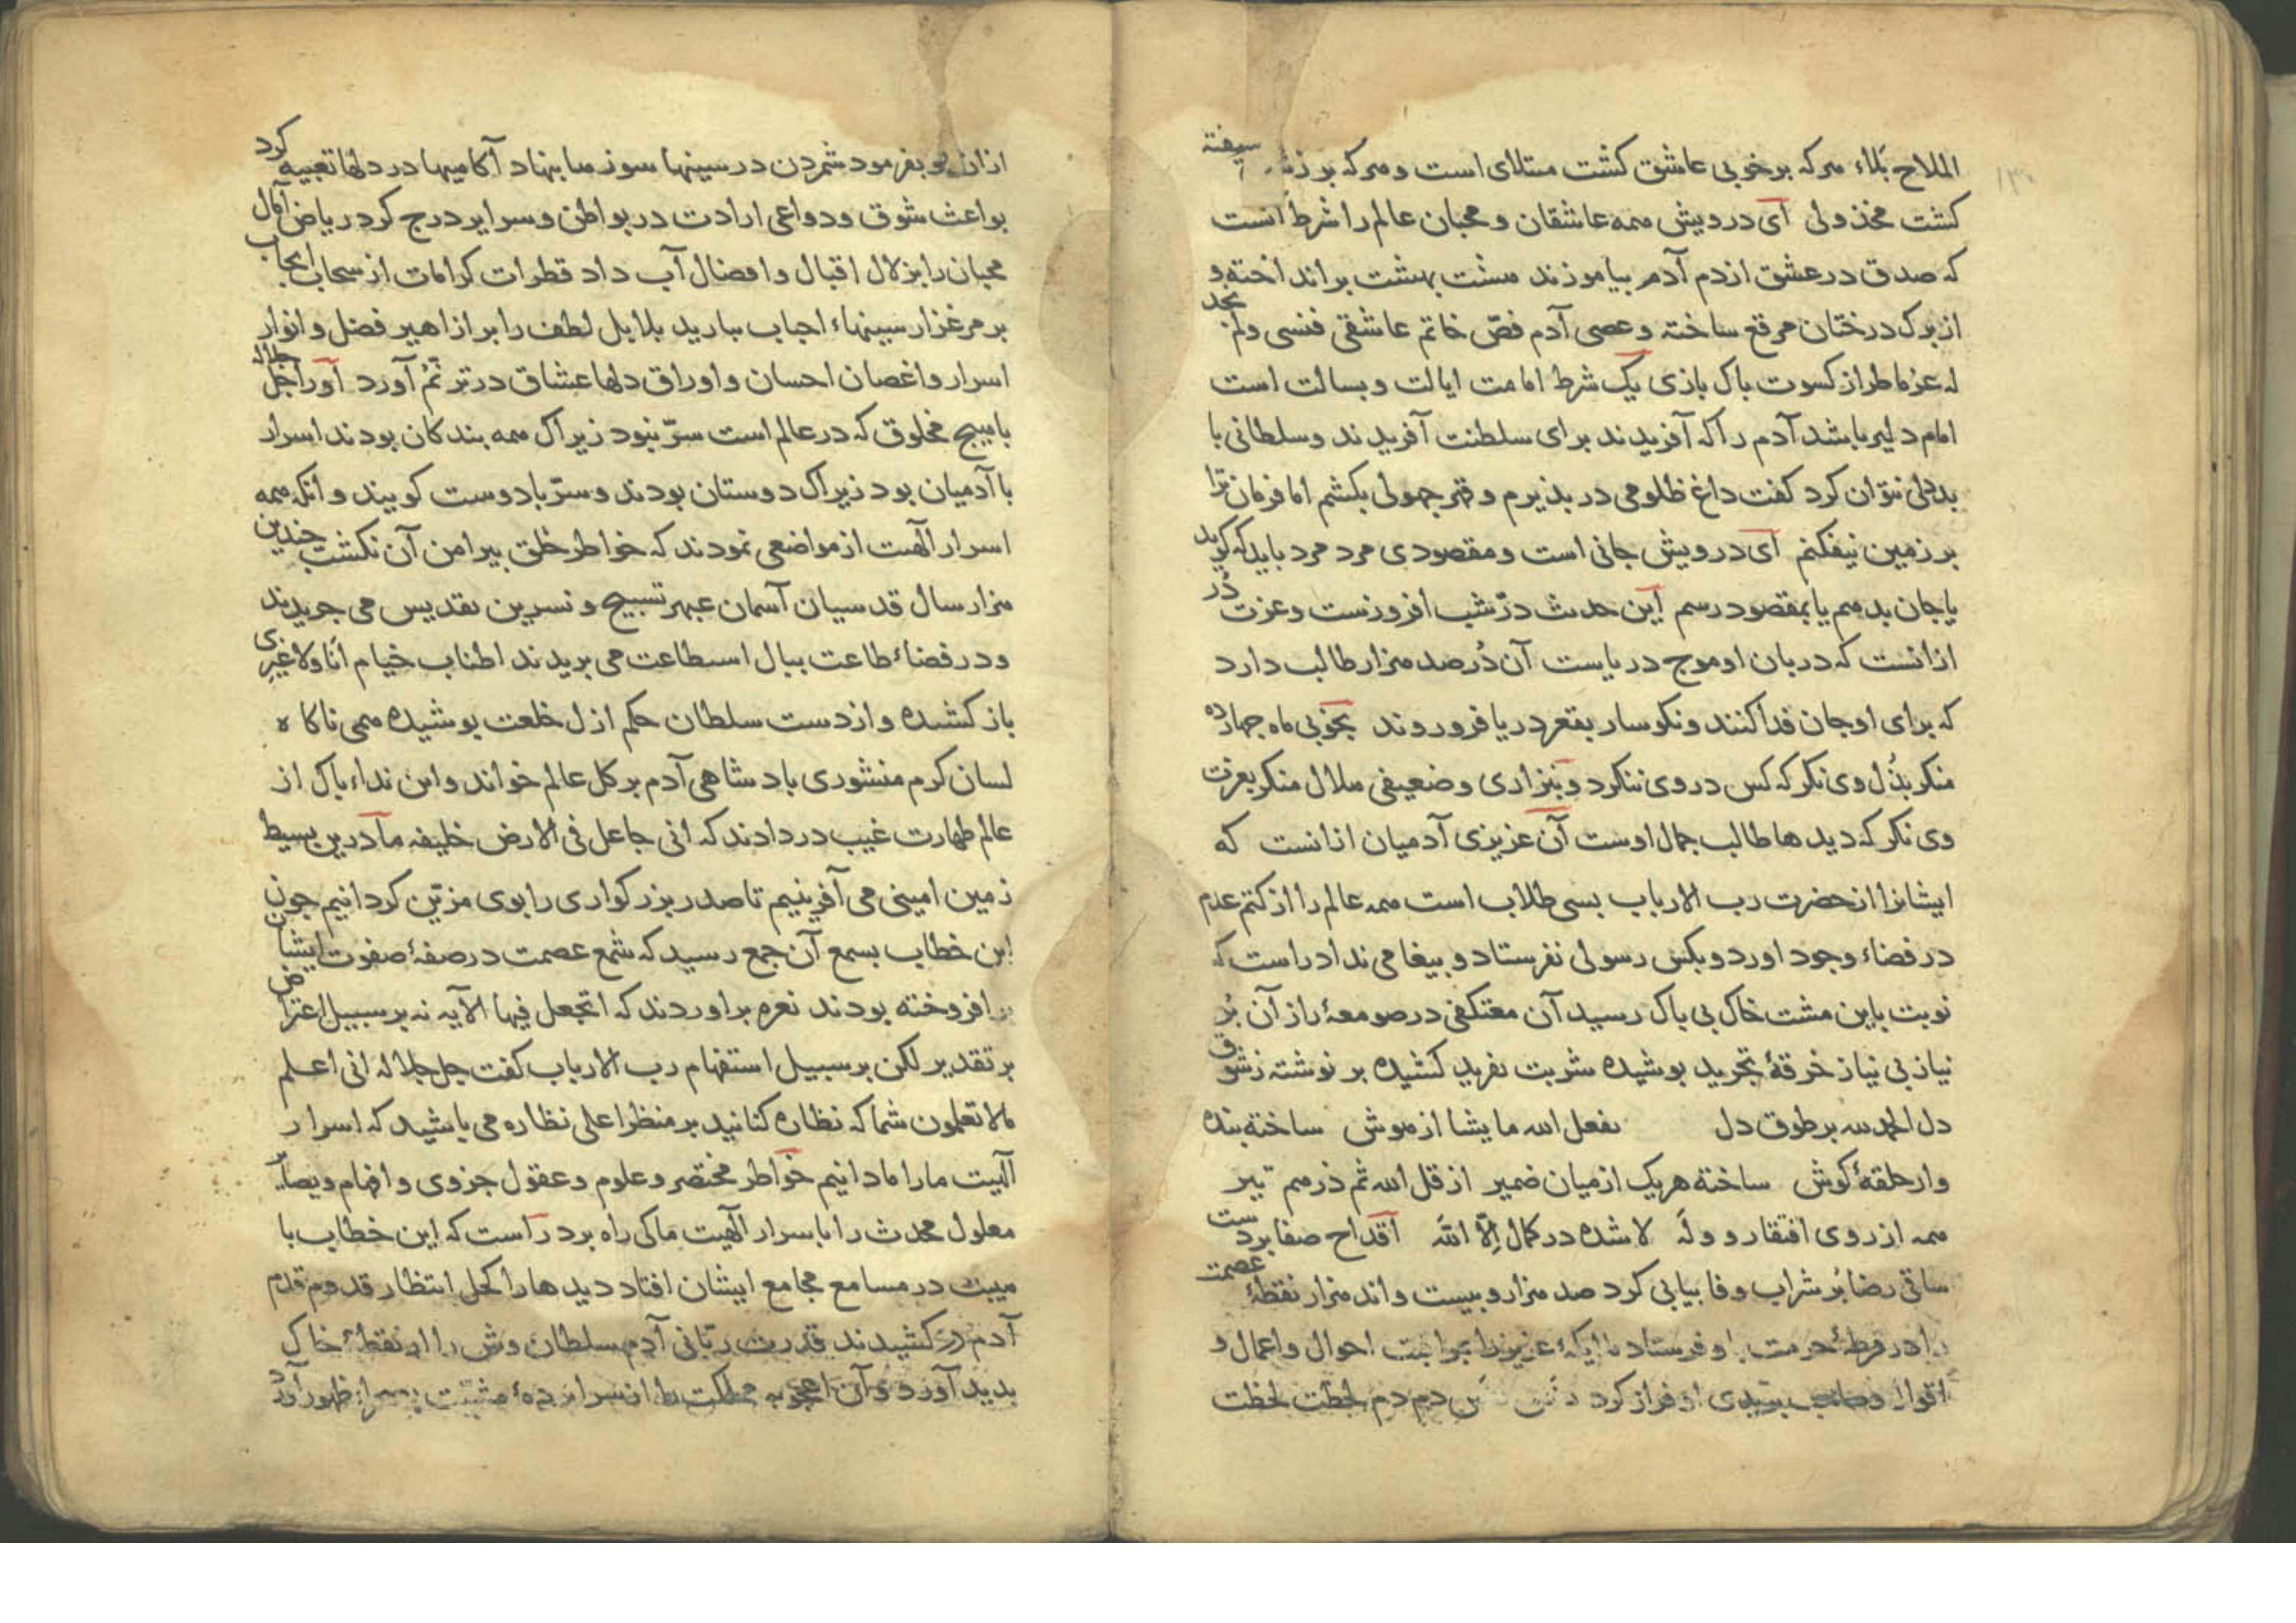 الملاح بلاء هرکه بر خوبی عاشق کشت مبتلای است و هرکه بر سیفته
کشت مخذولی ای درویش همه عاشقان و محبان عالم را شرط آنست
که صدق در عشق از دم آدم بیاموزند هشت بهشت برانداخته و
از برک درختان مرقع ساخته و عصی آدم فصّ خاتم عاشقی فنسی ولم نجد
له عزما طراز کسوت باک بازی یک شرط امامت ایالت و بسالت است
امام دلیر باشد آدم را که آفریدند برای سلطنت آفریدند و سلطانی با
بددلی نتوان کرد کفت داغ ظلومی در بذیرم و قهر جهولی بکشم اما فرمان ترا
بر زمین نیفکنم ای درویش جانی است و مقصودی مرد مرد باید که کوید
یا جان بدهم یا بمقصود رسم این حدیث درّ شب افروزست و عزت دُر
از آنست که دربان او موج دریاست آن دُر صد هزار طالب دارد
که برای او جان فدا کنند و نکوسار بقعر دریا فرو روند بخوبی ماه جهارده
منکر بذُل وی نکر که کس در وی ننکرد و بنزاری و ضعیفی هلال منکر بعزت
وی نکر که دیدها طالب جمال اوست آن عزیزی آدمیان از آنست که
ایشانرا از حضرت رب الارباب بسی طلاب است همه عالم را از کتم عدم
در فضاء وجود اورد و بکس رسولی نفرستاد و بیغامی نداد راست که
نوبت باین مشت خاک بی باک رسید آن معتکفی در صومعۀ راز آن بُر
نیاز بی نیاز خرقۀ تجرید بوشیده شربت تفرید کشیده بر نوشته ز شوق
دل الحمد لله بر طوق دل یفعل الله ما یشا از هوش ساخته بنده
وار حلقۀ کوش ساخته هریک از میان ضمیر از قل الله ثم ذرهم تیر
همه از روی افتقار و ولَه لا شده در کمال اِلّا الله اقداح صفا بر دست
ساقی رضا بُر شراب وفا بیابی کرد صد هزار و بیست و اند هزار نقطۀ عصمت
را در قرطۀ حرمت فرستاد احوال و اعمال و
اقوال کرد دم دم لحظت لحظت
از انفاس بفرمود شمردن در سینها سوزها بنهاد آکامیها در دلها تعبیه کرد
بواعث شوق و دواعی ارادت در بواطن و سرایر درج کرد ریاض آمال
محبان را بزلال اقبال و افضال آب داد قطرات کرامات از سحاب ایجاب
بر مرغزار سینهاء احباب بارید بلابل لطف را بر ازاهیر فضل و انوار
اسرار و اغصان احسان و اوراق دلها عشاق در ترنّم آورد آورا جلّ جلاله
با هیچ مخلوق که در عالم است سرّ نبود زیراک همه بندکان بودند اسرار
با آدمیان بود زیراک دوستان بودند و سرّ با دوست کویند و آنکه همه
اسرار آلهیت از مواضعی نمودند که خواطر خلق بیرامن آن نکشت جندین
هزار سال قدسیان آسمان عبهر تسبیح و نسرین تقدیس می جریدند
و در فضاء طاعت ببال استطاعت می بریدند اطناب خیام انا ولا غیری
باز کشیده و از دست سلطان حکم ازل خلعت بوشیده همی ناکاه
لسان کرم منشوری بادشاهی آدم بر کل عالم خواند و این نداء باک از
عالم طهارت غیب در دادند که انی جاعل فی الارض خلیفه ما درین بسیط
زمین امینی می آفرینیم تا صدر بزرکواری را بوی مزیّن کردانیم جون
این خطاب بسمع آن جمع رسید که شمع عصمت در صفۀ صفوت ایشان
بر افروخته بودند نعره براوردند که اتجعل فیها الآیه نه بر سبیل اعتراض
بر تقدیر لکن بر سبیل استفهام رب الارباب کفت جل جلاله انی اعلم
مالا تعلمون شما که نظاره کنانید بر منظر اعلی نظاره می باشید که اسرار
آلهیت ما را ما دانیم خواطر مختصر و علوم و عقول جزوی و افهام و بصایر
معلول محدث را با اسرار آلهیت ما کی راه برد راست که این خطاب با
هیبت در مسامع مجامع ایشان افتاد دیدها را کحل انتظار قدوم قدم
آدم در کشیدند قدرت ربّانی آدم سلطان وش را از نقطۀ خاک
بدید آورد و آن اعجوبه مملکت را از سرابردۀ مشیت ظهور آورد